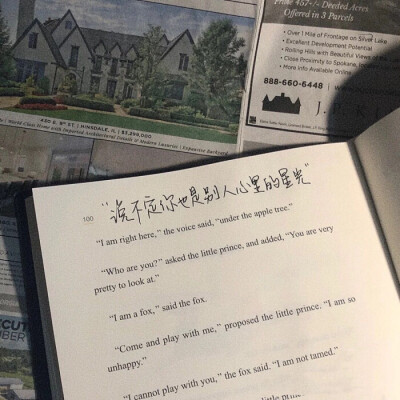 Price 457-/- Deeded Acres
Offered in 3 Parcels
• Over 1 Mile of Frontage on Silver Lake
• Excellent Development Potential
• Rolling Hills with Beautiful Views
• Close Proximity to Spokane,
• More Info Available Online
888-660-6448
HINSDALE, IL
100
“说不定你也是别人心里的星光”
“I am right here,” the voice said, “under the apple tree.”
“Who are you?” asked the little prince, and added, “You are very
pretty to look at.”
“I am a fox,” said the fox.
“Come and play with me,” proposed the little prince. “I am so
unhappy.”
“I cannot play with you,” the fox said. “I am not tamed.”